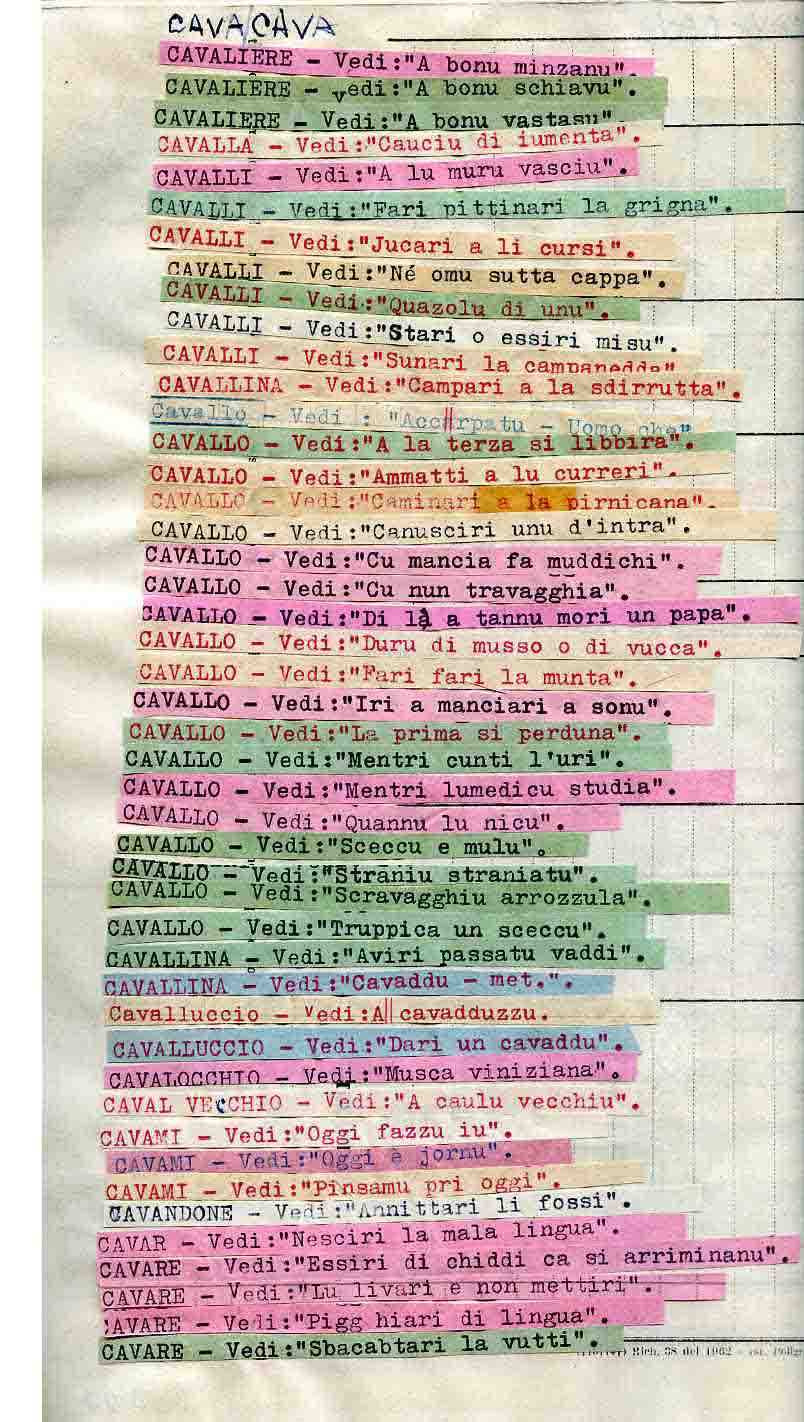 CAVA/CAVA
CAVALIERE - Vedi:"A bonu minzanu".
CAVALIERE - vedi:"A bonu schiavu".
CAVALIERE - Vedi:"A bonu vastasu".
CAVALLA - Vedi:"Cauciu di iumenta".
CAVALLI - Vedi:"A lu muru vasciu".
CAVALLI - Vedi:"Fari pittinari la grigna".
CAVALLI - Vedi:"Jucari a li cursi".
CAVALLI - Vedi:"Né omu sutta cappa".
CAVALLI - Vedi:"Quazolu di unu".
CAVALLI - Vedi:"Stari o essiri misu".
CAVALLI - Vedi:"Sunari la campanedda"
CAVALLINA - Vedi:"Campari a la sdirrutta".
Cavallo - Vedi : "Acc rpatu - Uomo che"
CAVALLO - Vedi:"A la terza si libbira".
CAVALLO - Vedi:"Ammatti a lu curreri".
CAVALLO - Vedi:"Caminari a la pirnicana".
CAVALLO - Vedi:"Canusciri unu d'intra".
CAVALLO - Vedi:"Cu mancia fa muddichi".
CAVALLO - Vedi:"Cu nun travagghia".
CAVALLO - Vedi:"Di là a tannu mori un papa".
CAVALLO - Vedi:"Duru di musso o di vucca".
CAVALLO - Vedi:"Fari fari la munta".
CAVALLO - Vedi:"Iri a manciari a sonu".
CAVALLO - Vedi:"La prima si perduna".
CAVALLO - Vedi:"Mentri cunti l'uri".
CAVALLO - Vedi:"Mentri lumedicu studia".
CAVALLO - Vedi:"Quannu lu nicu".
CAVALLO - Vedi:"Sceccu e mulu".
CAVALLO - Vedi:"Straniu straniatu".
CAVALLO - Vedi:"Scravagghiu arrozzula".
CAVALLO - Vedi:"Truppica un sceccu".
CAVALLINA - Vedi:"Aviri passatu vaddi".
CAVALLINA - Vedi:"Cavaddu - met.".
Cavalluccio - Vedi:A cavadduzzu.
CAVALLUCCIO - Vedi:"Dari un cavaddu".
CAVALOCCHIO - Vedi:"Musca viniziana".
CAVAL VECCHIO - Vedi:"A caulu vecchiu".
CAVAMI - Vedi:"Oggi fazzu iu".
CAVAMI - Vedi:"Oggi è jornu".
CAVAMI - Vedi:"Pinsamu pri oggi".
CAVANDONE - Vedi:"Annittari li fossi".
CAVAR - Vedi:"Nesciri la mala lingua".
CAVARE - Vedi:"Essiri di chiddi ca si arriminanu".
CAVARE - Vedi:"Lu livari e non mettiri".
CAVARE - Vedi:"Pigg hiari di lingua".
CAVARE - Vedi:"Sbacabtari la vutti".
Rich. 38 del 1962